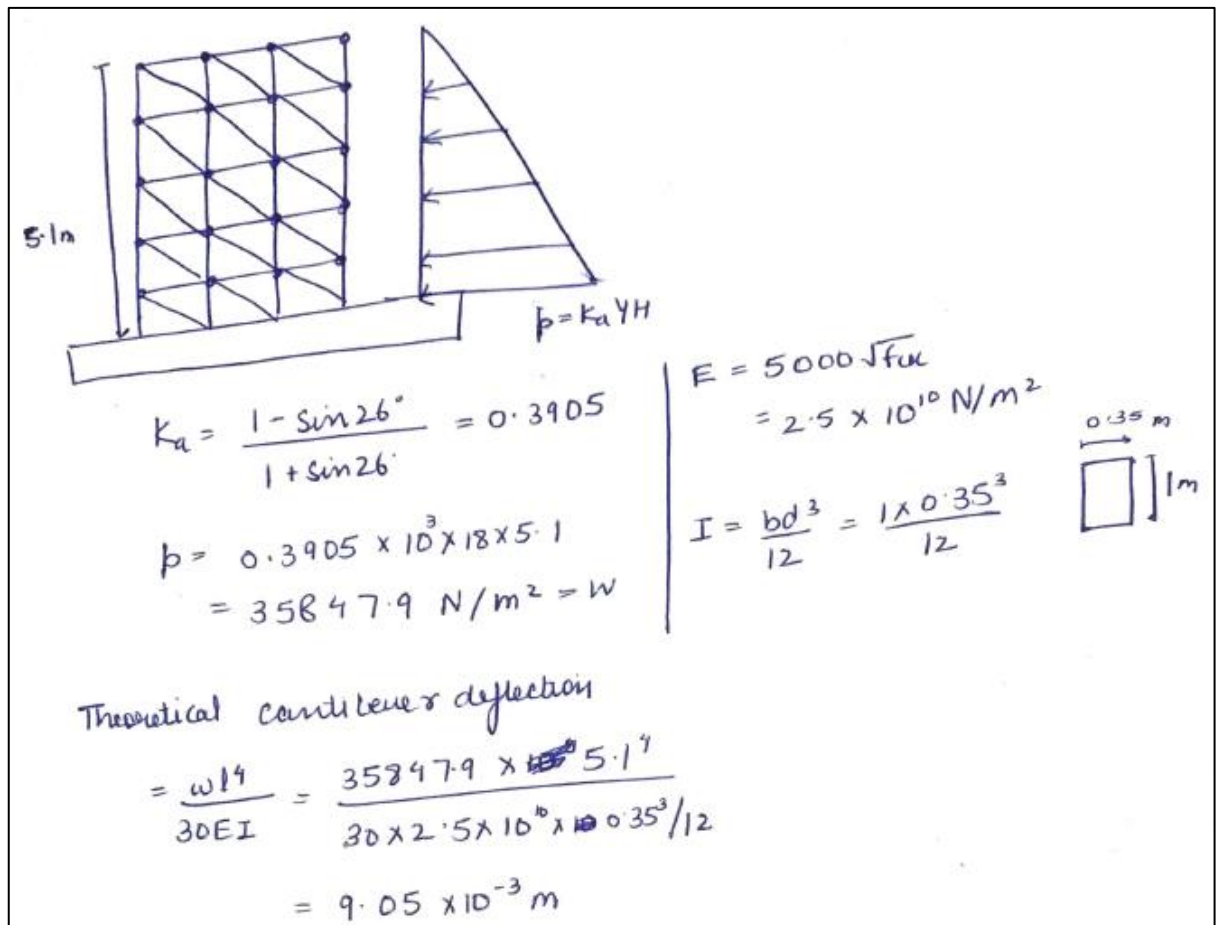 5.1m
p = Ka γH
Ka = (1 - sin26°) / (1 + sin26°) = 0.3905
p = 0.3905 × 10³ × 18 × 5.1
= 35847.9 N/m² = W
E = 5000 √fck
= 2.5 × 10¹⁰ N/m²
I = bd³/12 = (1 × 0.35³)/12
0.35 m
1m
Theoretical cantilever deflection
= ωl⁴/30EI = (35847.9 × 5.1⁴) / (30 × 2.5 × 10¹⁰ × 0.35³/12)
= 9.05 × 10⁻³ m